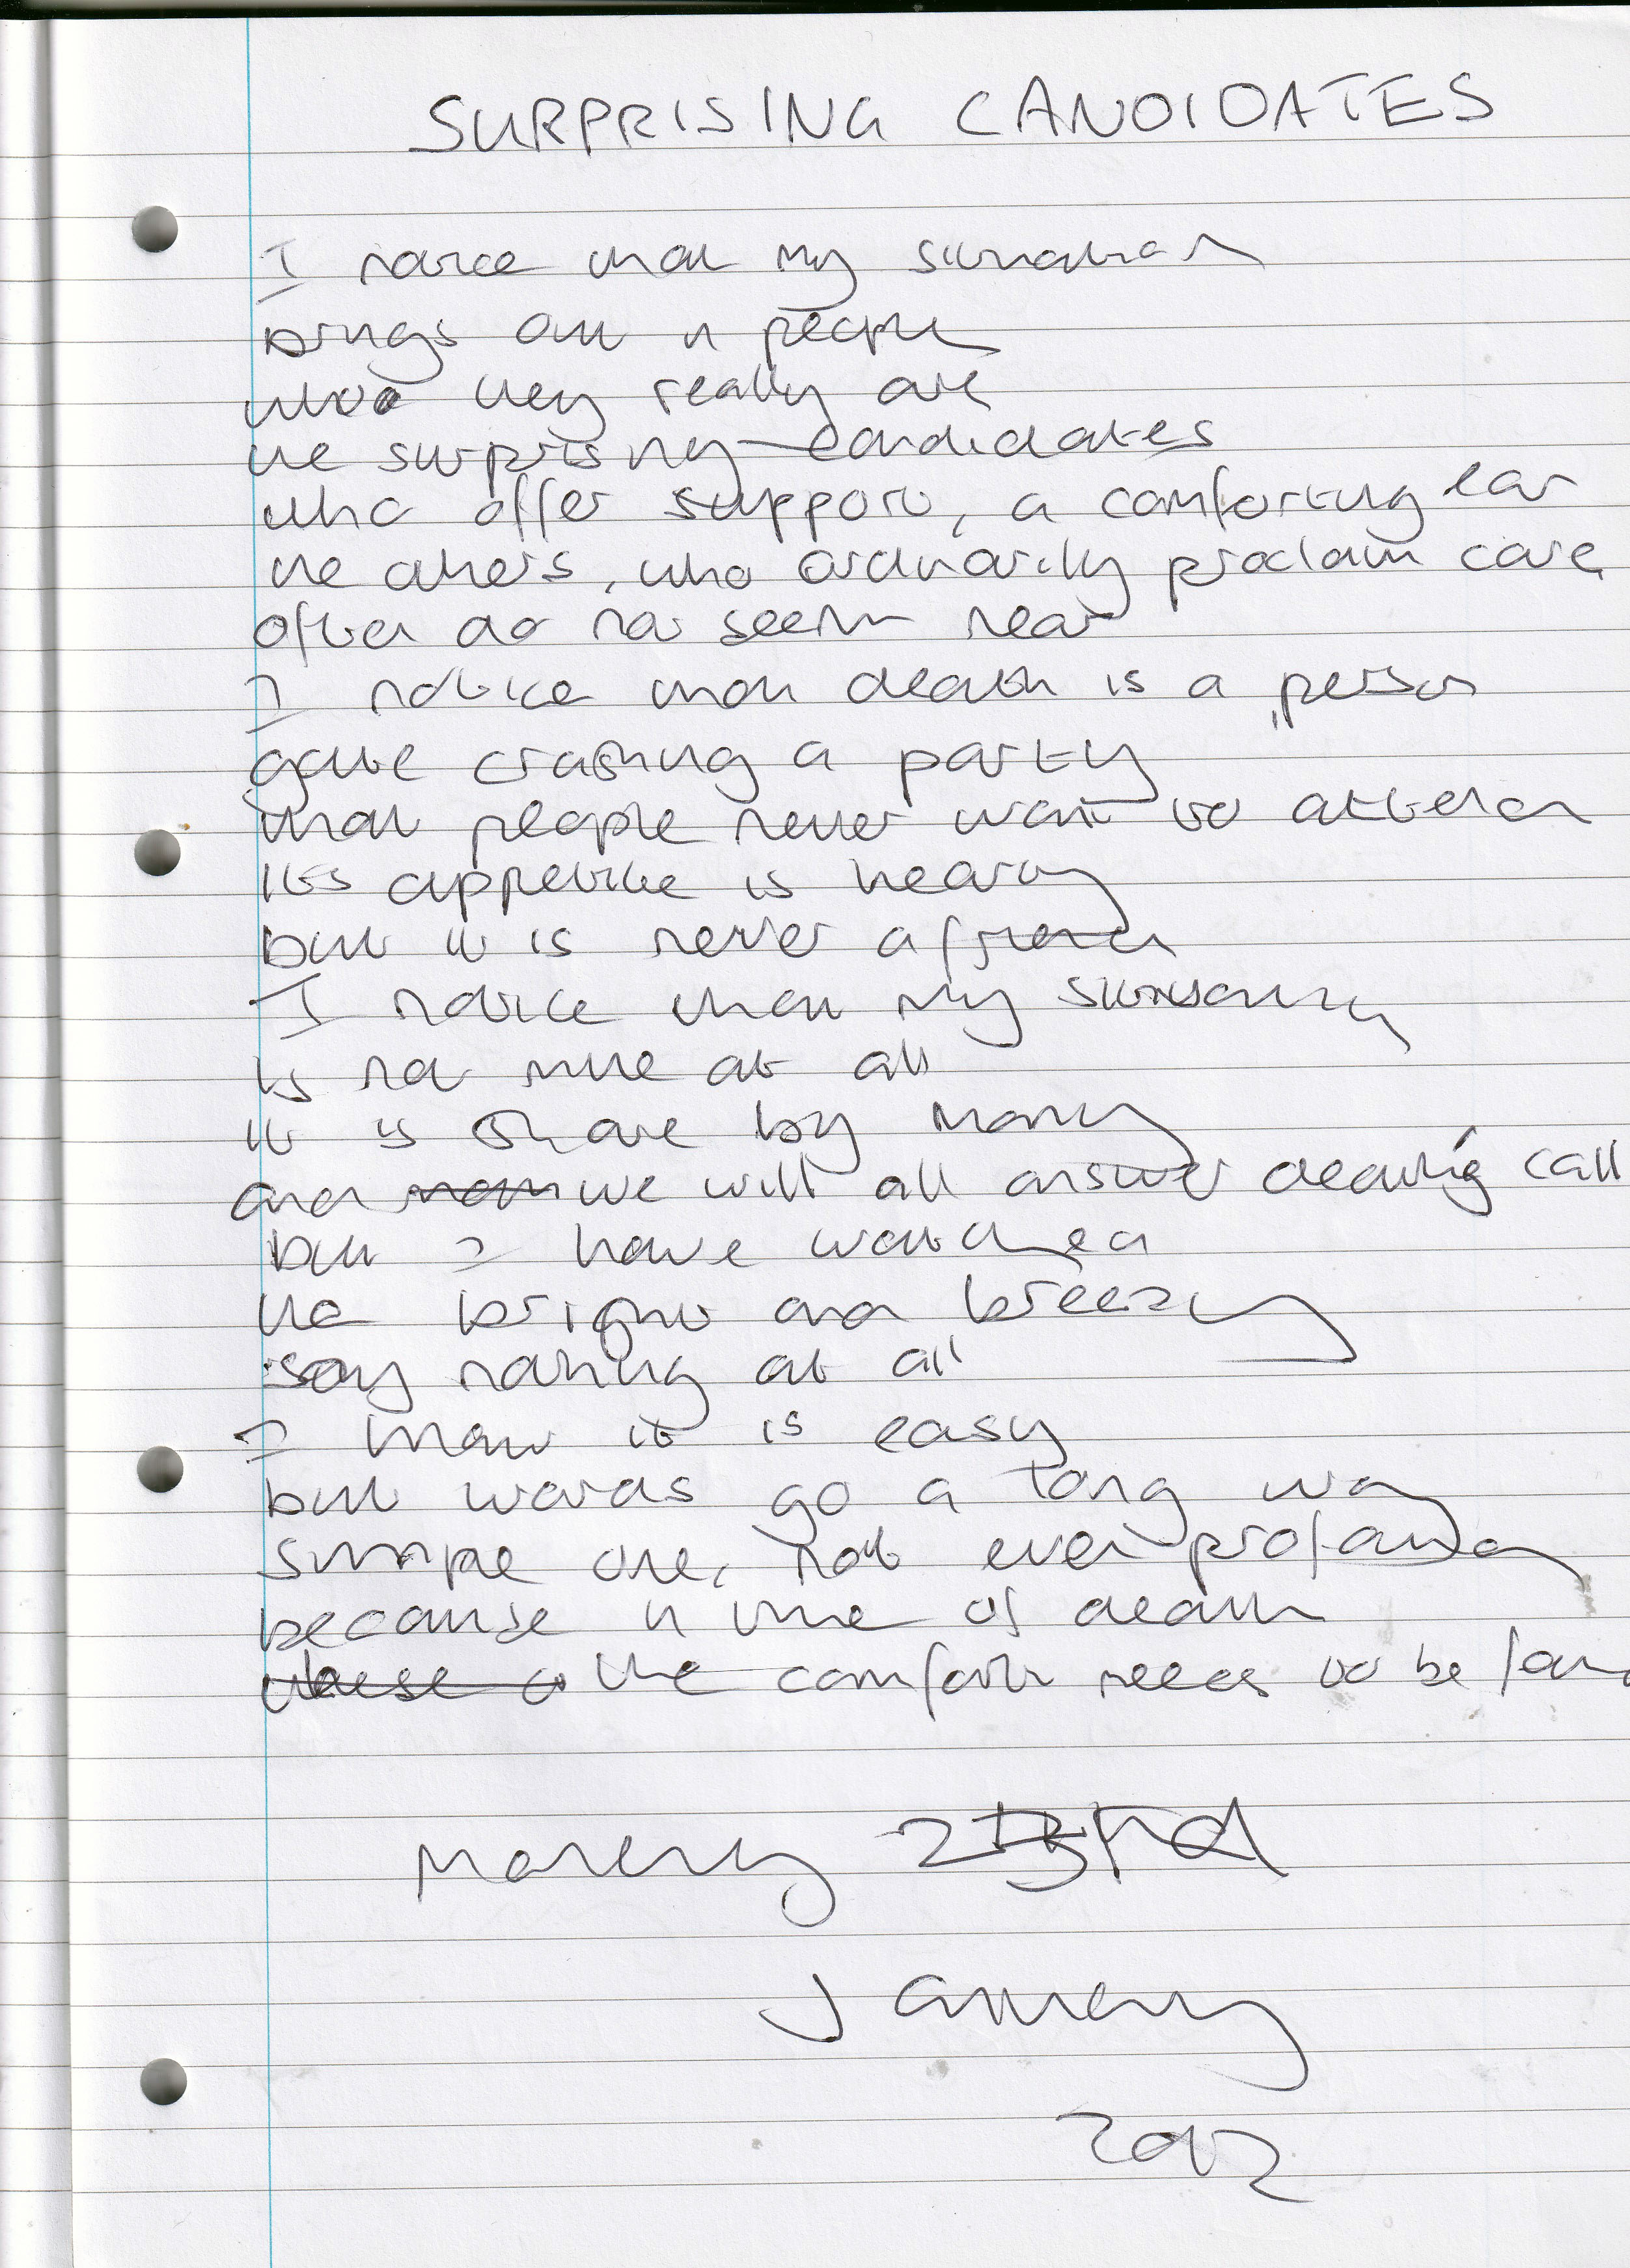 SURPRISING CANDIDATES
I notice that my situation
brings out in people
who they really are
the surprising candidates
who offer support, a comforting ear
the others, who ordinarily proclaim care,
often do not seem near
I notice that death is a person
gate crashing a party
that people never want to attend
its appetite is hearty
but it is never a friend
I notice that my
is not mine at all
it is share by many
and we will all answer deaths call
but I have watched
the bright and breezy
say nothing at all
I know it is easy
but words go a long way
simple one, not even profound
because in time of death
the comfort needs to be
Monday
January
2012